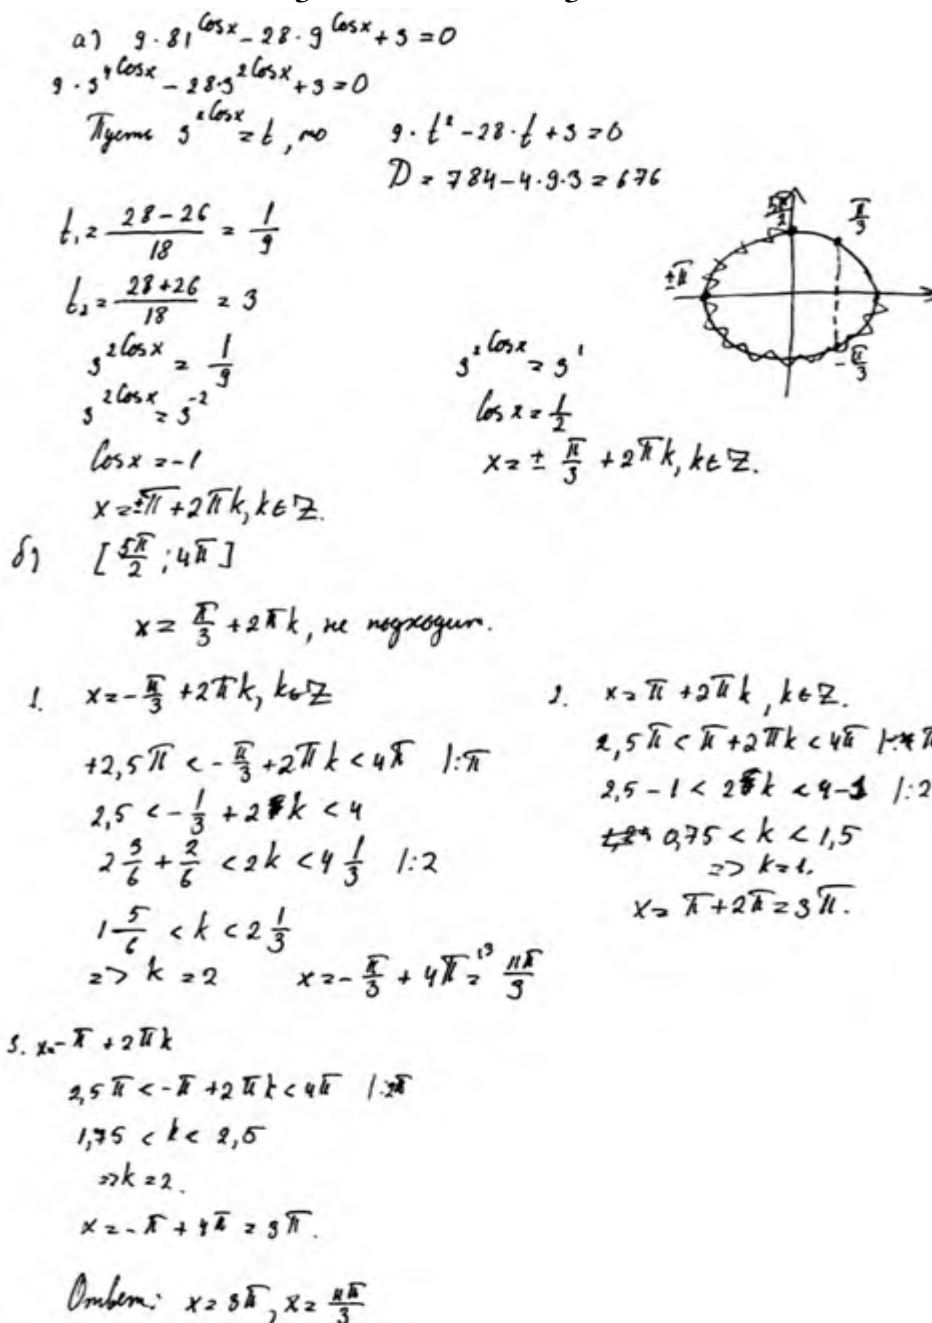 а) 9·81^{cosx} − 28·9^{cosx} + 3 = 0
9·3^{4cosx} − 28·3^{2cosx} + 3 = 0
Пусть 3^{2cosx} = t, то 9·t² − 28·t + 3 = 0
D = 784 − 4·9·3 = 676
t₁ = \frac{28−26}{18} = \frac{1}{9}
t₂ = \frac{28+26}{18} = 3
\frac{5π}{2} \frac{π}{3}
±π
−\frac{π}{3}
3^{2cosx} = \frac{1}{9}
3^{2cosx} = 3^{−2}
cosx = −1
x = ±π + 2πk, k∈Z.
3^{2cosx} = 3^1
cosx = \frac{1}{2}
x = ± \frac{π}{3} + 2πk, k∈Z.
б) [\frac{5π}{2}; 4π]
x = \frac{π}{3} + 2πk, не подходит.
1. x = −\frac{π}{3} + 2πk, k∈Z
+2,5π < −\frac{π}{3} + 2πk < 4π |:π
2,5 < −\frac{1}{3} + 2k < 4
2\frac{3}{6} + \frac{2}{6} < 2k < 4\frac{1}{3} |:2
1\frac{5}{6} < k < 2\frac{1}{3}
=> k = 2 x = −\frac{π}{3} + 4π^{13} = \frac{11π}{3}
2. x = π + 2πk, k∈Z.
2,5π < π + 2πk < 4π |:π
2,5 − 1 < 2k < 4−1 |:2
0,75 < k < 1,5
=> k = 1.
x = π + 2π = 3π.
3. x = −π + 2πk
2,5π < −π + 2πk < 4π |:2π
1,75 < k < 2,5
=> k = 2.
x = −π + 4π = 3π.
Ответ: x = 3π, x = \frac{11π}{3}